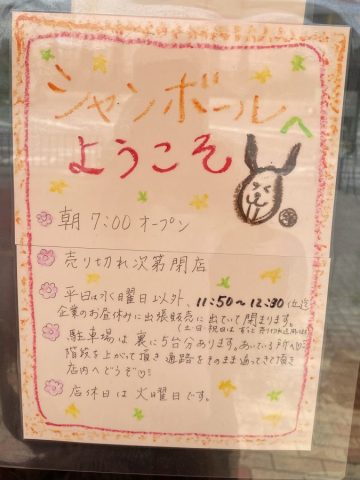 シャンボールへ
ようこそ
朝 7:00 オープン
売り切れ次第閉店
平日は水曜日以外、11:50〜12:30位迄
企業のお昼休みに出張販売に出ていて閉まります。
(土・日・祝日は
駐車場は裏に5台分あります。あいている所へ
階段を上がって頂き通路をそのまま通ってきて頂き
店内へどうぞ♡!
店休日は火曜日です。